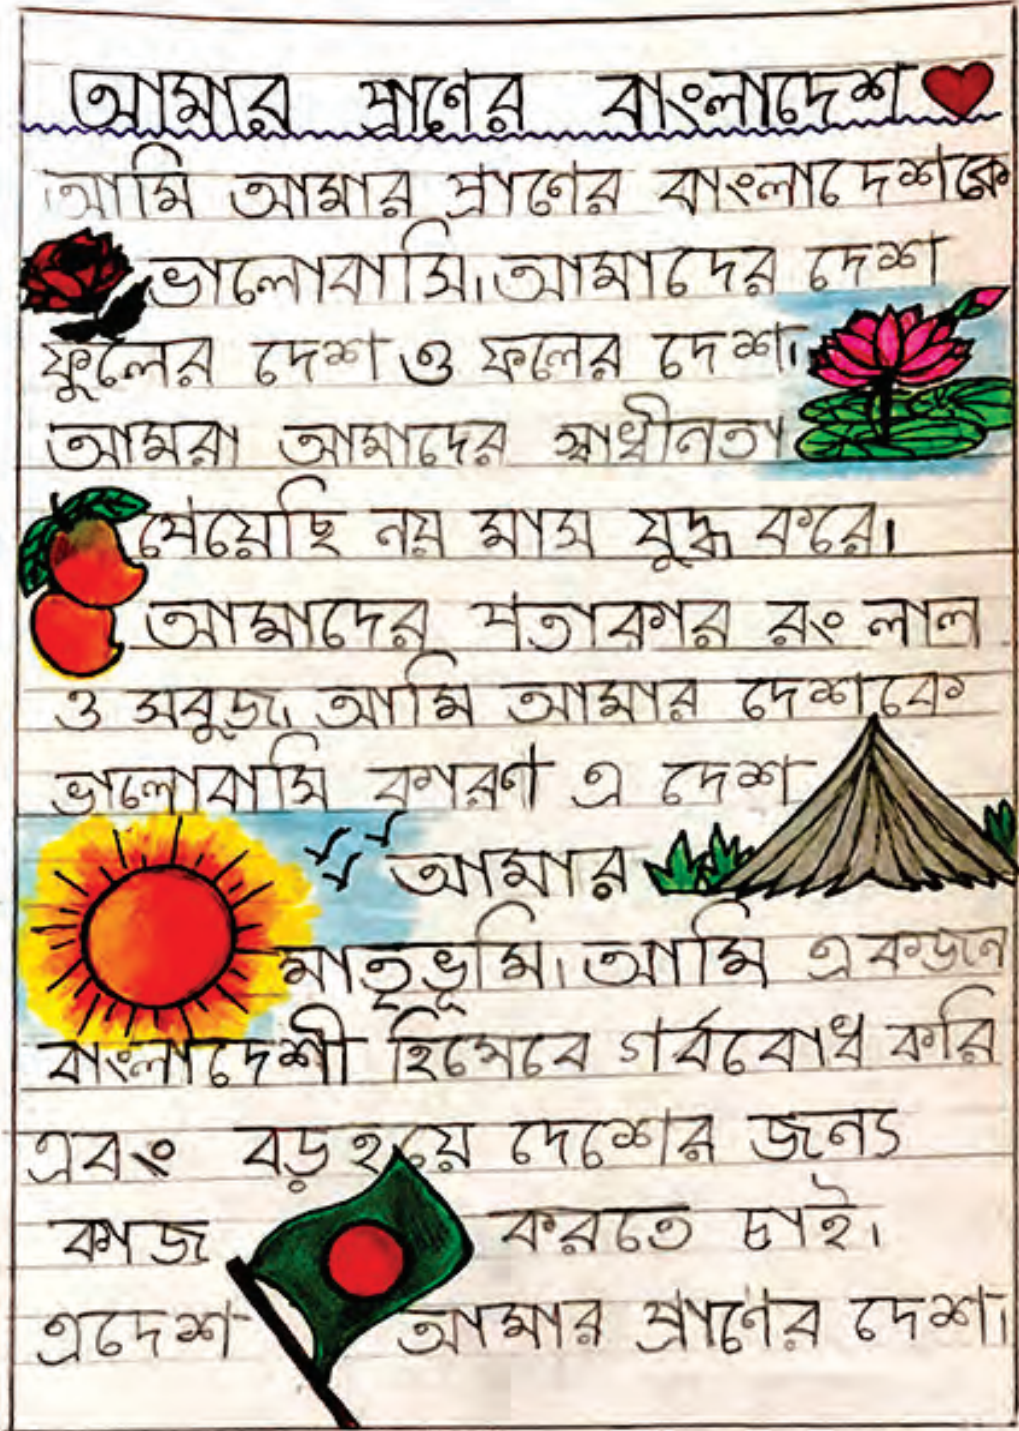 আমার প্রাণের বাংলাদেশ
আমি আমার প্রাণের বাংলাদেশকে
ভালোবাসি। আমাদের দেশ
ফুলের দেশ ও ফলের দেশ।
আমরা আমাদের স্বাধীনতা
পেয়েছি নয় মাস যুদ্ধ করে।
আমাদের পতাকার রং লাল
ও সবুজ। আমি আমার দেশকে
ভালোবাসি কারণ এ দেশ
আমার
মাতৃভূমি। আমি একজন
বাংলাদেশী হিসেবে গর্ববোধ করি
এবং বড় হয়ে দেশের জন্য
কাজ করতে চাই।
এদেশ আমার প্রাণের দেশ।